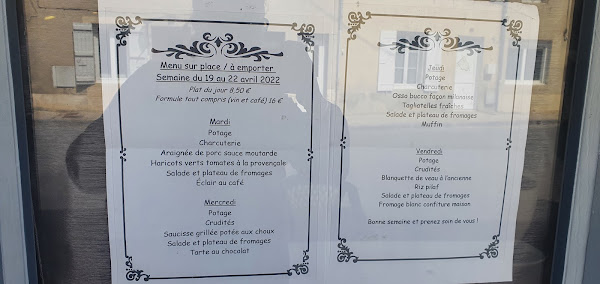 Menu sur place / à emporter
Semaine du 19 au 22 avril 2022
Plat du jour 8,50 €
Formule tout compris (vin et café) 16 €
Mardi
Potage
Charcuterie
Araignée de porc sauce moutarde
Haricots verts tomates à la provençale
Salade et plateau de fromages
Éclair au café
Mercredi
Potage
Crudités
Saucisse grillée potée aux choux
Salade et plateau de fromages
Tarte au chocolat
Jeudi
Potage
Charcuterie
Osso bucco façon milanaise
Tagliatelles fraîches
Salade et plateau de fromages
Muffin
Vendredi
Potage
Crudités
Blanquette de veau à l'ancienne
Riz pilaf
Salade et plateau de fromages
Fromage blanc confiture maison
Bonne semaine et prenez soin de vous !